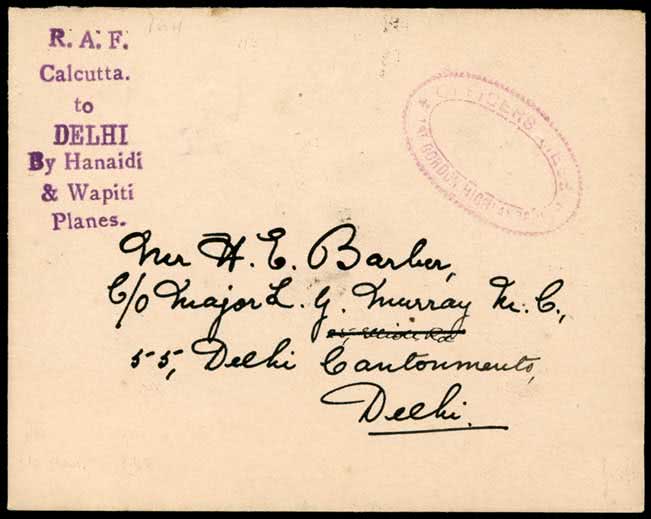 R. A. F.
Calcutta.
to
DELHI
By Hanaidi
& Wapiti
Planes.
OFFICERS MESS
1ST GORDON HIGHLANDERS
Mr H. E. Barber,
C/o Major L. G. Murray M. C.,
55, Delhi Cantonments,
Delhi.